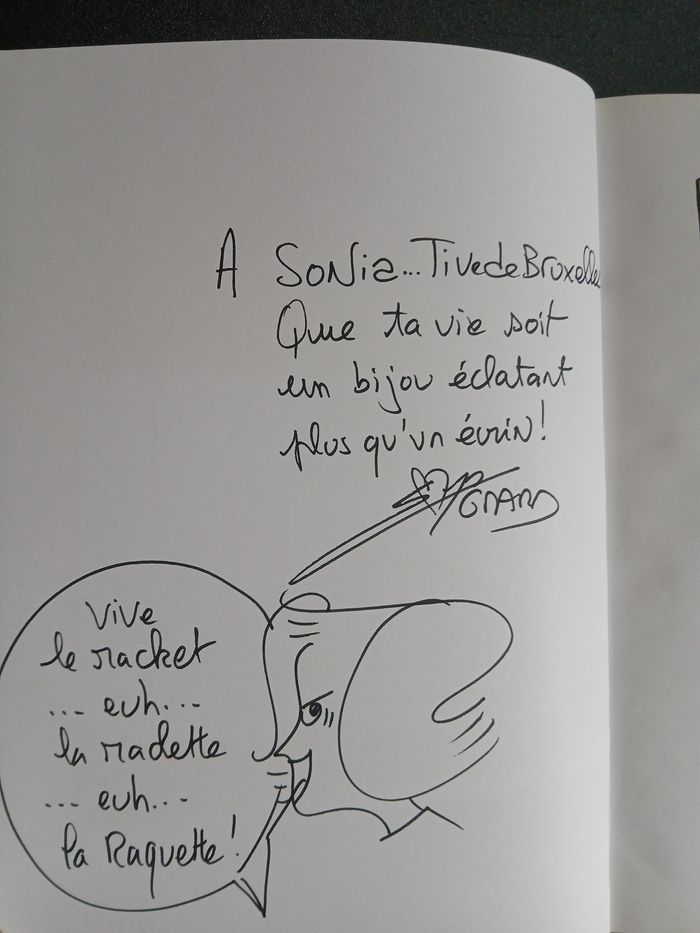 A SoNia...TivedeBruxelles
Que ta vie soit
un bijou éclatant
plus qu'un écrin!
Vive
le racket
... euh...
la radette
... euh...
la Raquette!